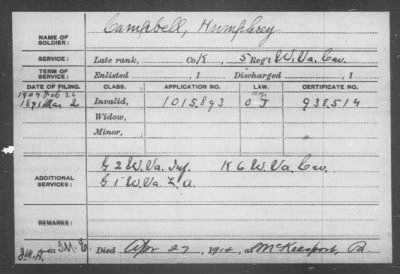 NAME OF SOLDIER: Campbell, Humphrey
SERVICE: Late rank, Co K, 5 Reg't W. Va. Cav.
TERM OF SERVICE: Enlisted , 1 Discharged , 1
DATE OF FILING. CLASS. APPLICATION NO. LAW. CERTIFICATE NO.
1907 Feb 26
1891 Mar. 2 Invalid, 1015,893 O J 938,514
Widow,
Minor,
ADDITIONAL SERVICES: G 2 W. Va. Inf. K 6 W. Va. Cav.
G 1 W. Va. L. A.
REMARKS:
Died Apr 27, 1914, at McKeesport, Pa